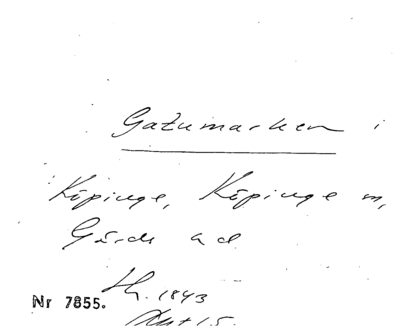 Gatumarken i
Köpinge, Köpinge m,
Gärds hd
Nr 7855. 1843